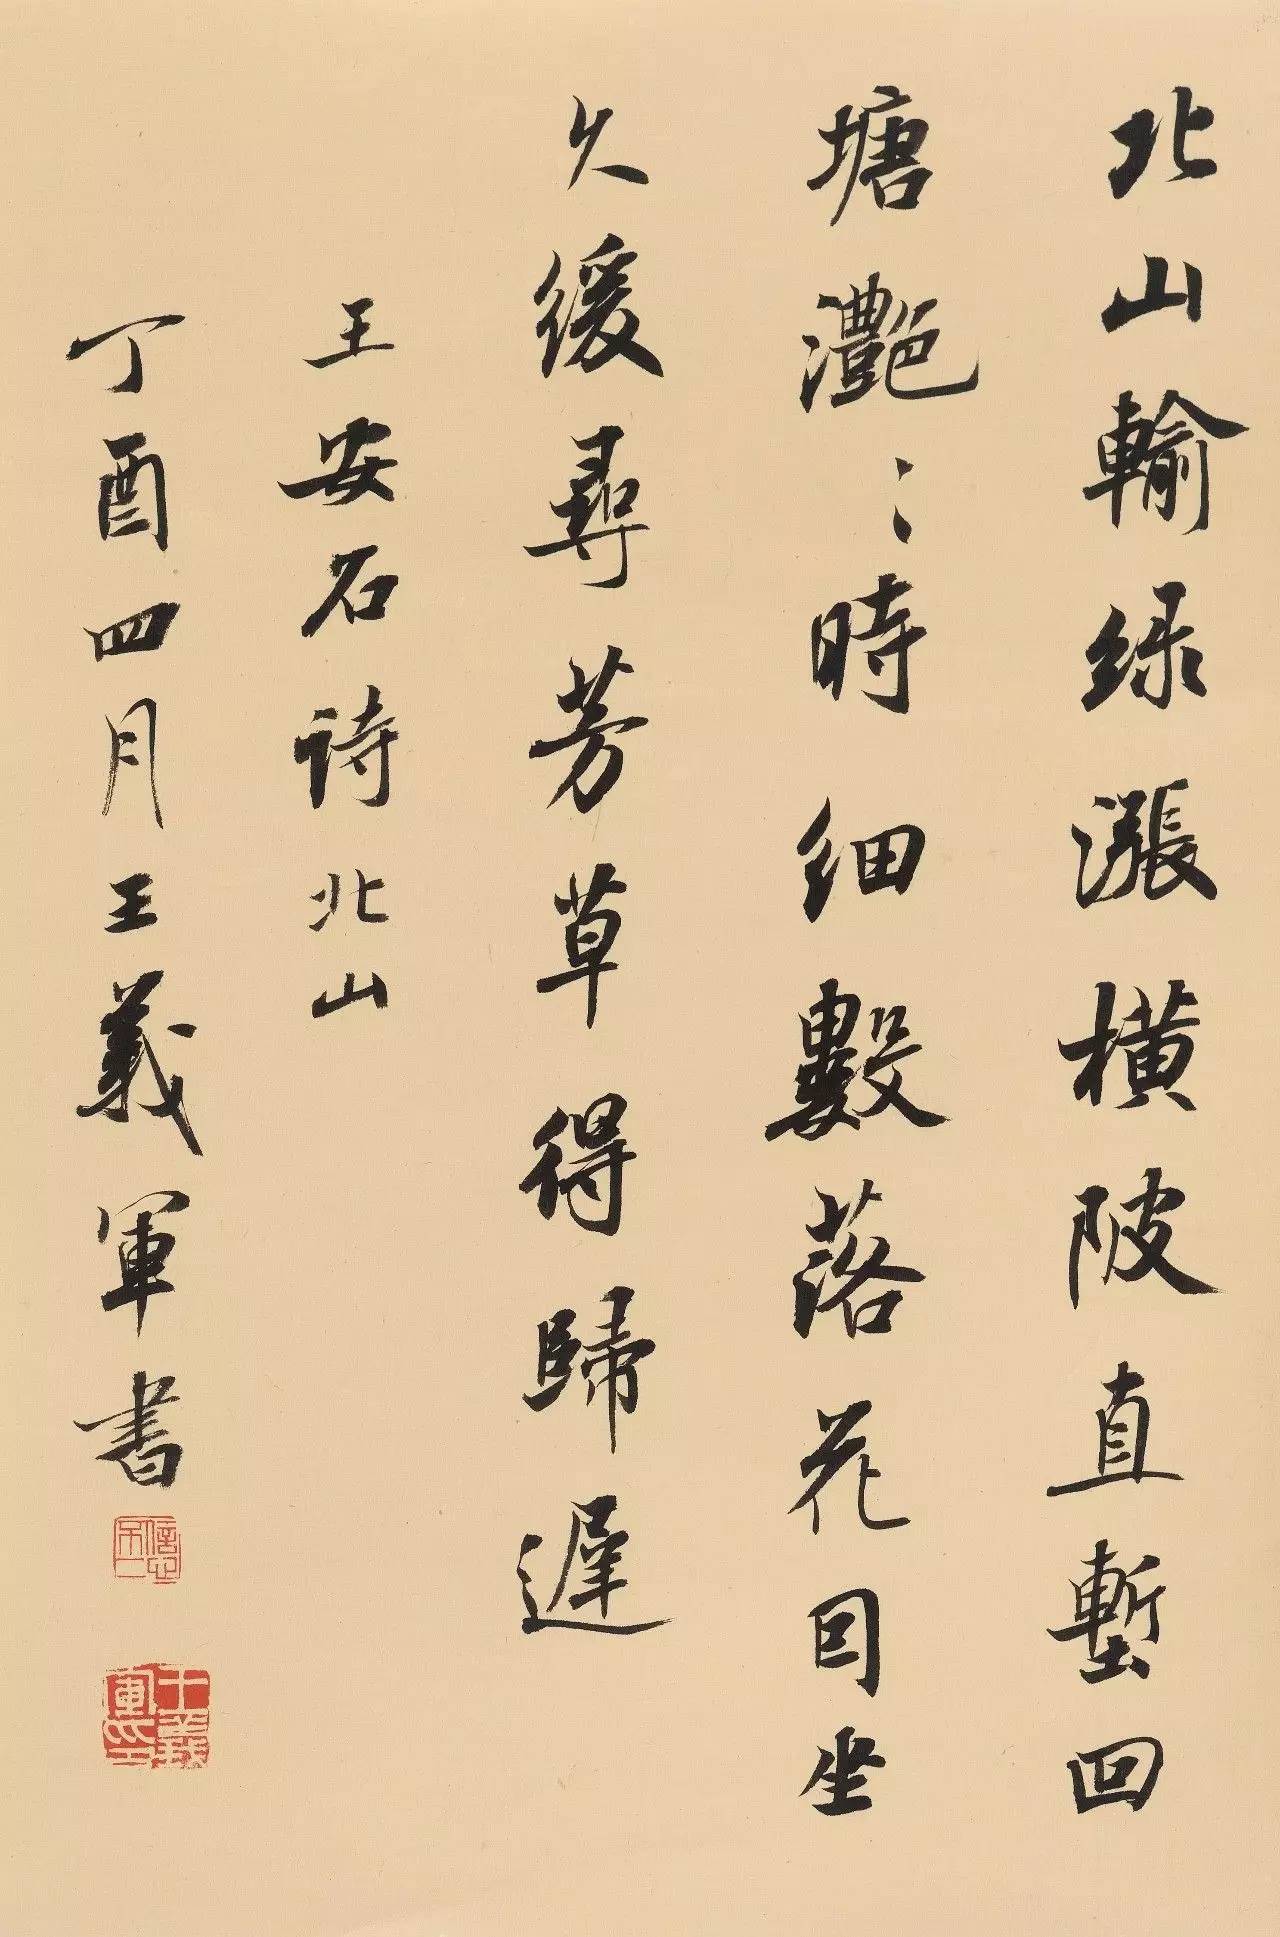 北山輸緑漲橫陂直塹回
塘灔〻時細數落花因坐
久緩尋芳草得歸遲
王安石诗北山
丁酉四月王義軍書
王義軍印